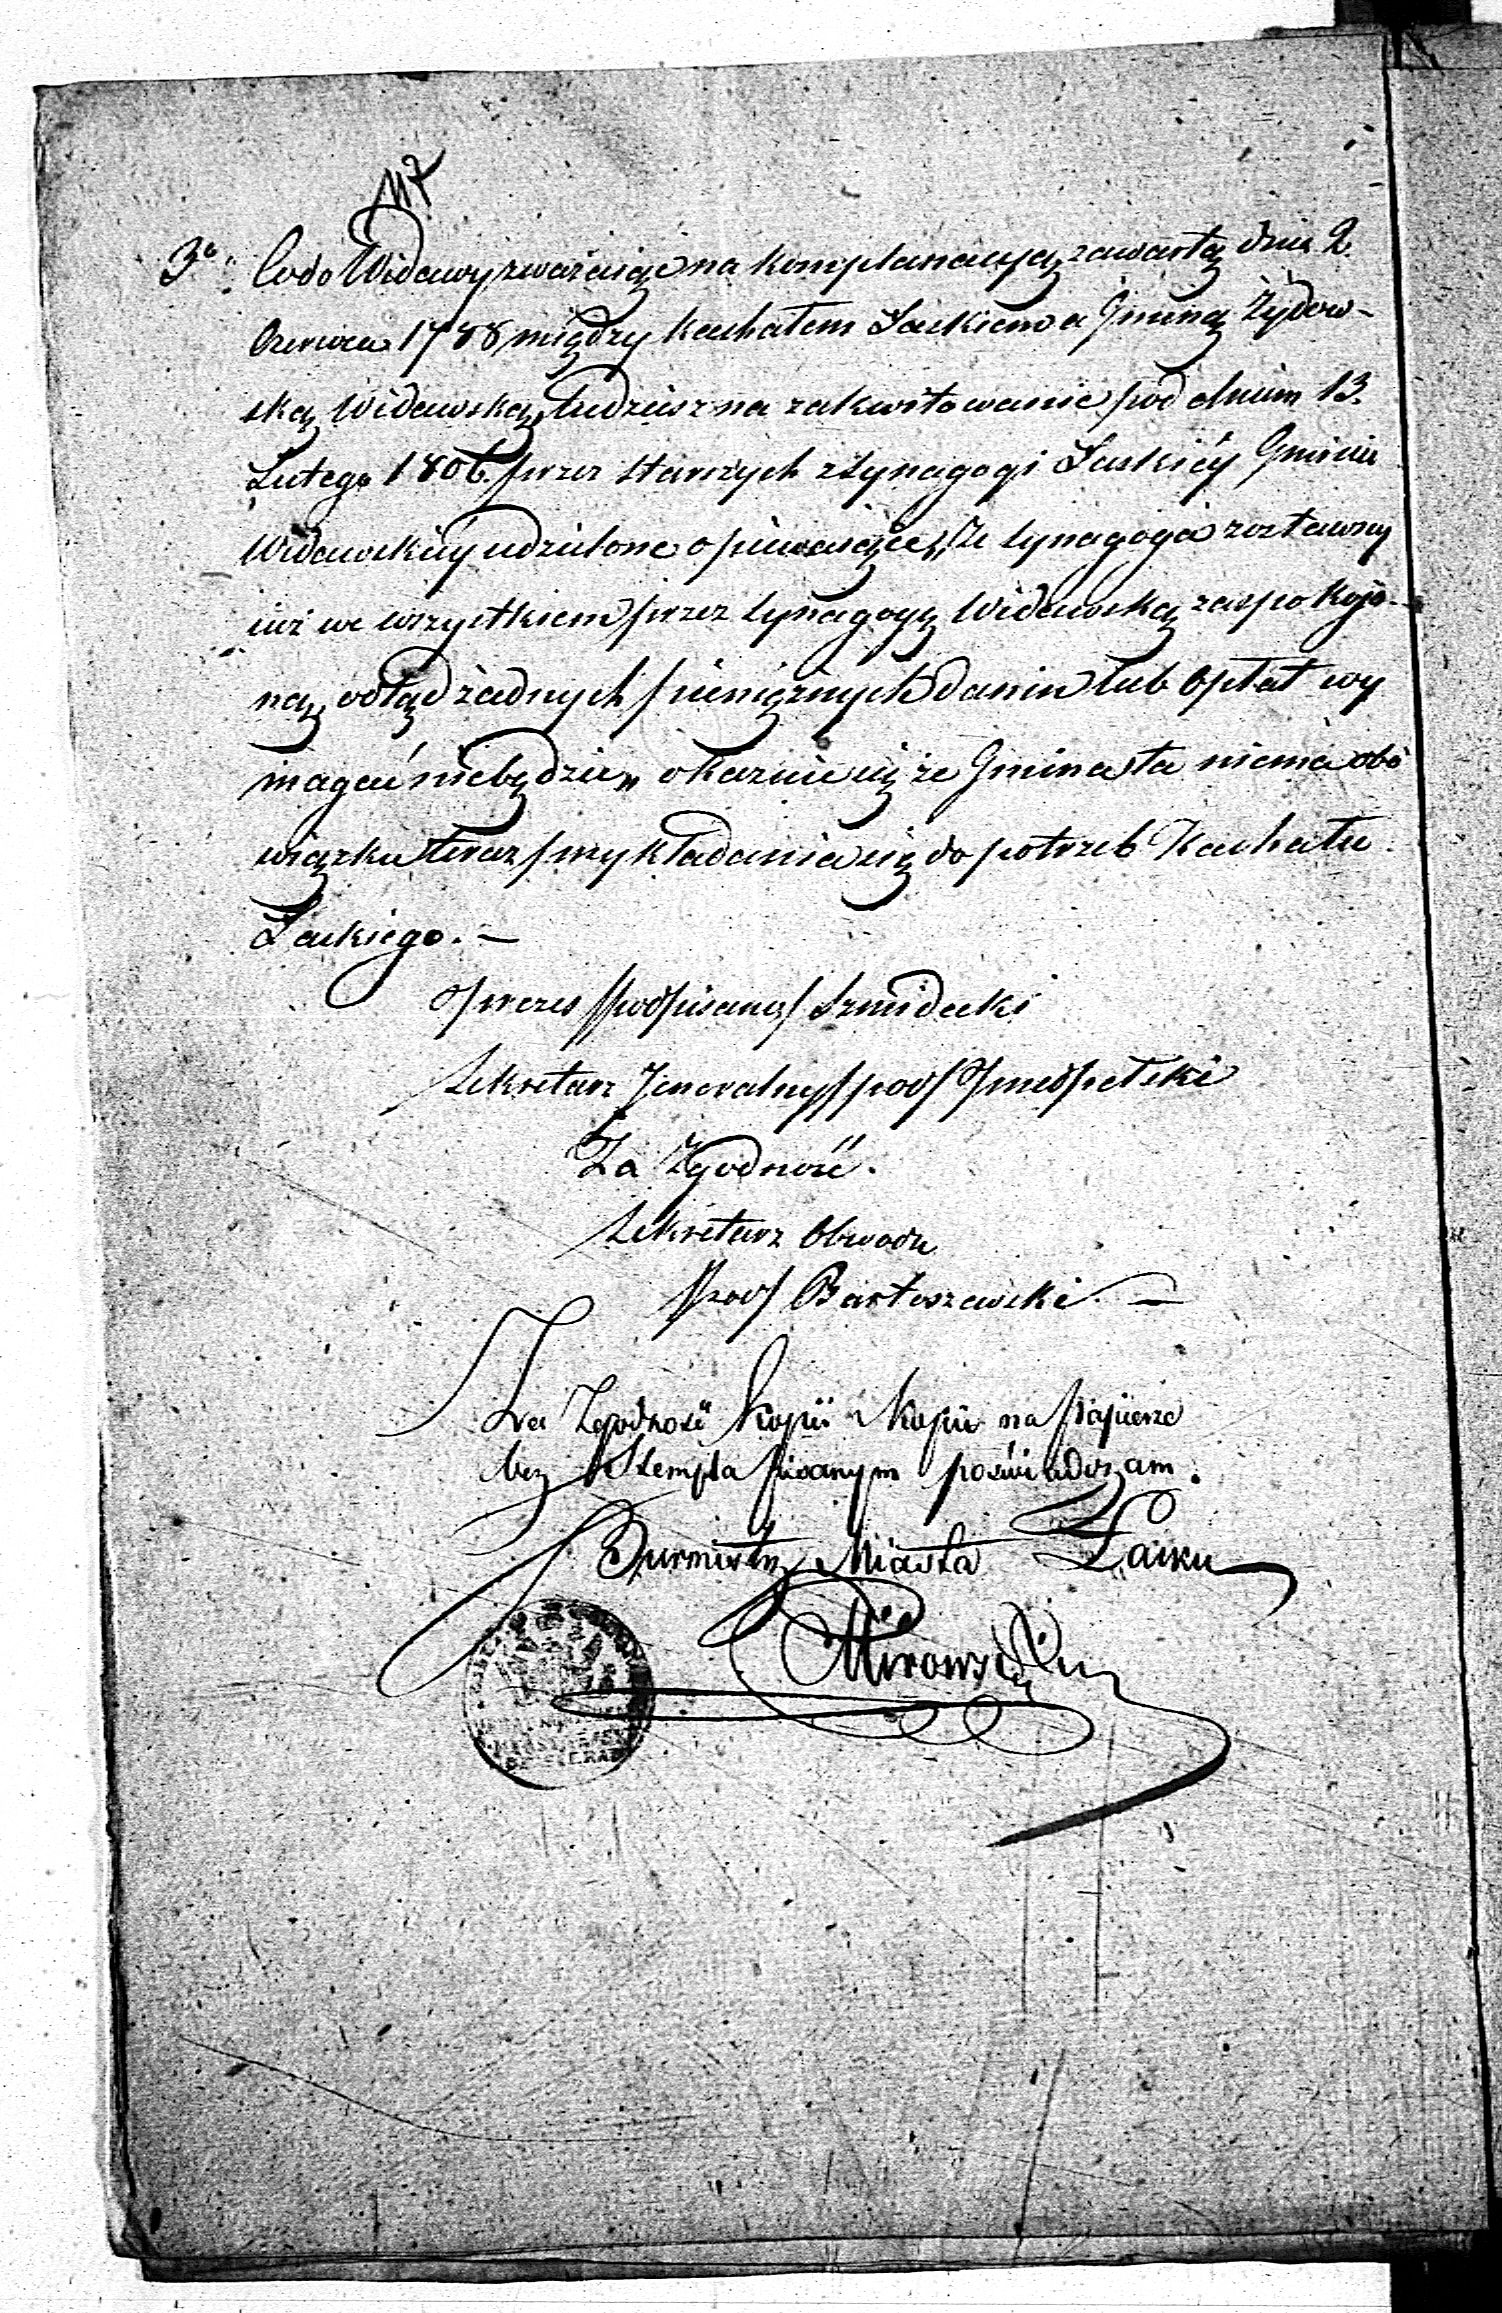 117
3o. Co do Widawy zważając na komplanacyą zawartą dnia 2.
Czerwca 1788 między Kachałem Łaskiem a Gminą Żydow-
ską Widawską, tudzież na zakwitowanie pod dniem 13.
Lutego 1806. przez starszych z Synagogi Łaskiéy Gminie
Widawskiéy udzielone opiewaiące, „Że Synagoga zostawszy
iuż we wszystkiem przez Synagogę Widawską zaspokojo-
ną, odtąd żadnych pieniężnych danin lub Opłat wy
magać niebędzie" okazuie się że Gmina ta niema obo
wiązku teraz przykładania się do potrzeb Kachału
Łaskiego. —
Prezes /podpisany/ Szmidecki
Sekretarz Jeneralny /pod/
Za Zgodność.
Sekretarz Obwodu
/pod/ Bartoszewski. —
Za Zgodność kopii z kopii na papierze
bez Stempla pisanym poświadczam.
Burmistrz Miasta Łasku